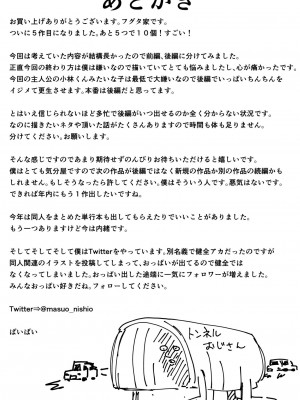 あとがき
お買い上げありがとうございます。フグタ家です。
ついに５作目になりました。あと５つで１０個！すごい！
今回は考えていた内容が結構長かったので前編、後編に分けてみました。
正直今回の終わり方は僕は嫌いなので描いていてとても悩みましたし、心が痛かったです。
今回の主人公の小林くんみたいな子は最低で大嫌いなので後編でいっぱいちんちんを
イジメて更生させます。本番は後編だと思ってます。
とはいえ信じられないほど多忙で後編がいつ出せるのか全く分からない状況です。
なのに描きたいネタや頂いた話がたくさんありますので時間も体も足りません。
分けてください。お願いします。
そんな感じですのであまり期待せずのんびりお待ちいただけると嬉しいです。
僕はとても気分屋ですので次の作品が後編ではなく新規の作品か別の作品の続編かも
しれません。もしそうなったら許してください。僕はそういう人です。悪気はないです。
できれば年内にもう１作出したいですね。
今年は同人をまとめた単行本も出してもらえたりでいいことがありました。
もう一つありますけど今は内緒です。
そしてそしてそして僕はTwitterをやっています。別名義で健全アカだったのですが
同人関連のイラストを投稿してしまって、おっぱいが出てるので健全では
なくなってしまいました。おっぱい出した途端に一気にフォロワーが増えました。
みんなおっぱい好きだね。フォローしてください。
Twitter⇒@masuo_nishio
ばいばい
トンネル
おじさん